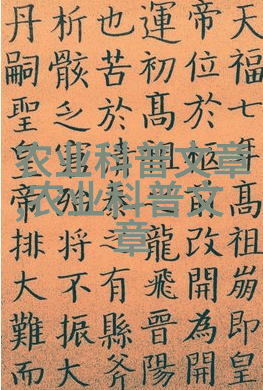 天福七年高祖崩即皇
帝位於柩前改開為開
運初高祖龍飛晉陽
也苦於之有縣斧
析骸之將不振大
丹嗣聖皇帝排大難而
农业科普文章
,农业科普文
章